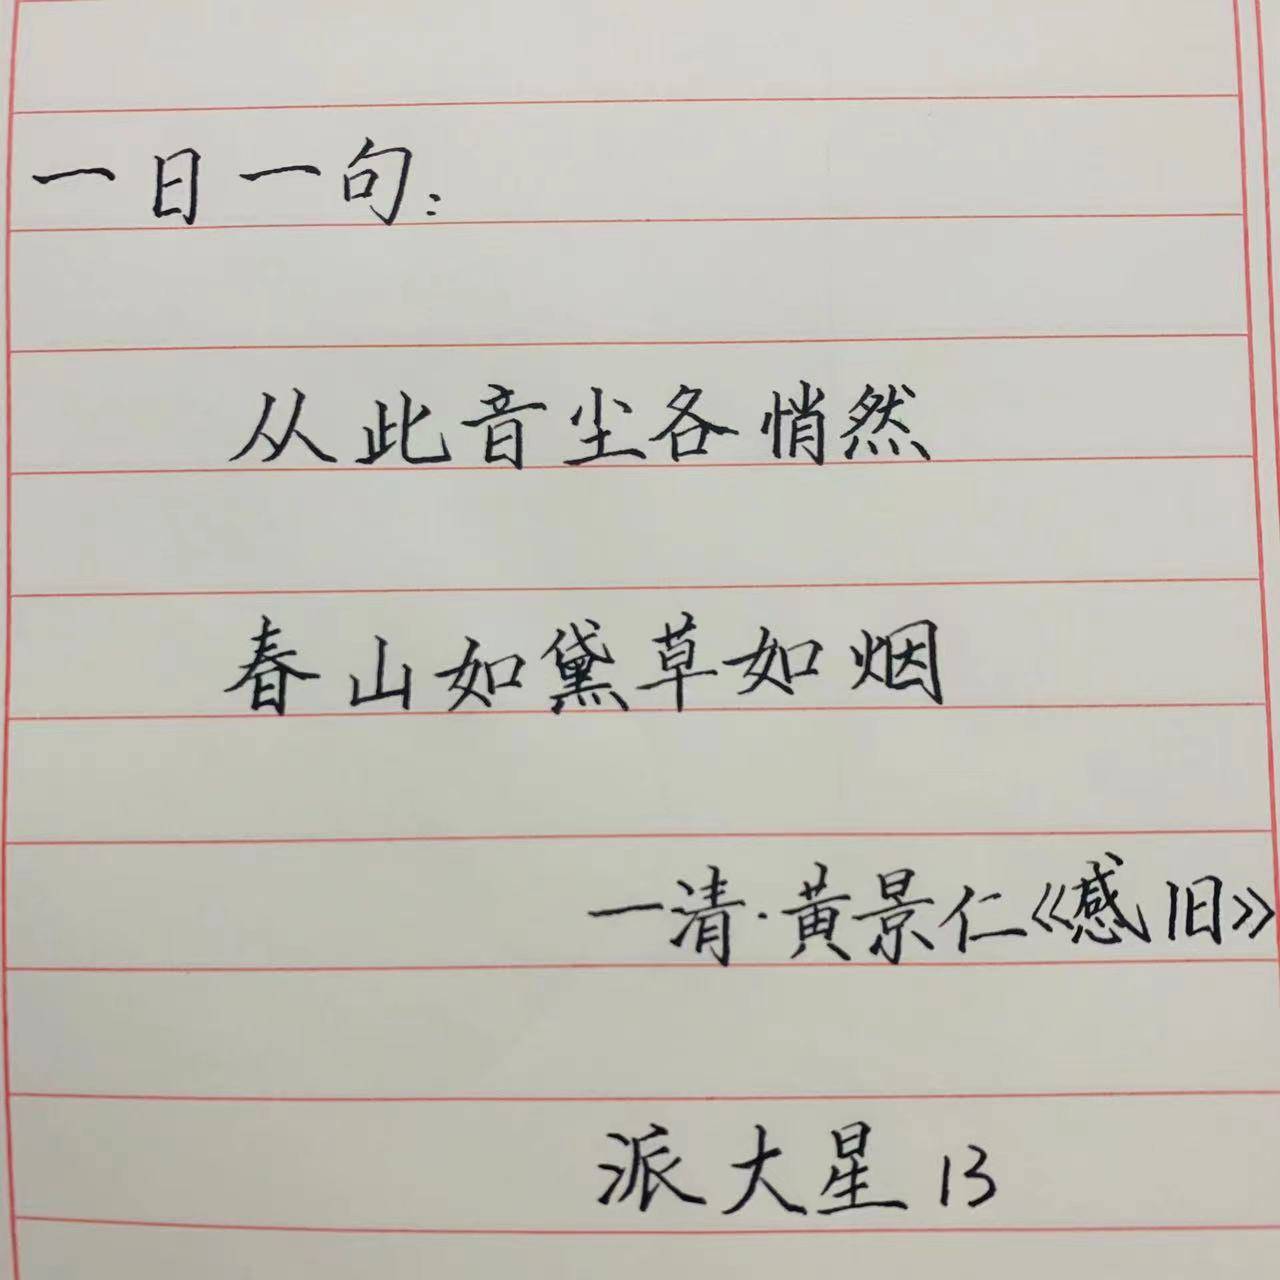 一日一句:
从此音尘各悄然
春山如黛草如烟
一清·黄景仁《感旧》
派大星 13